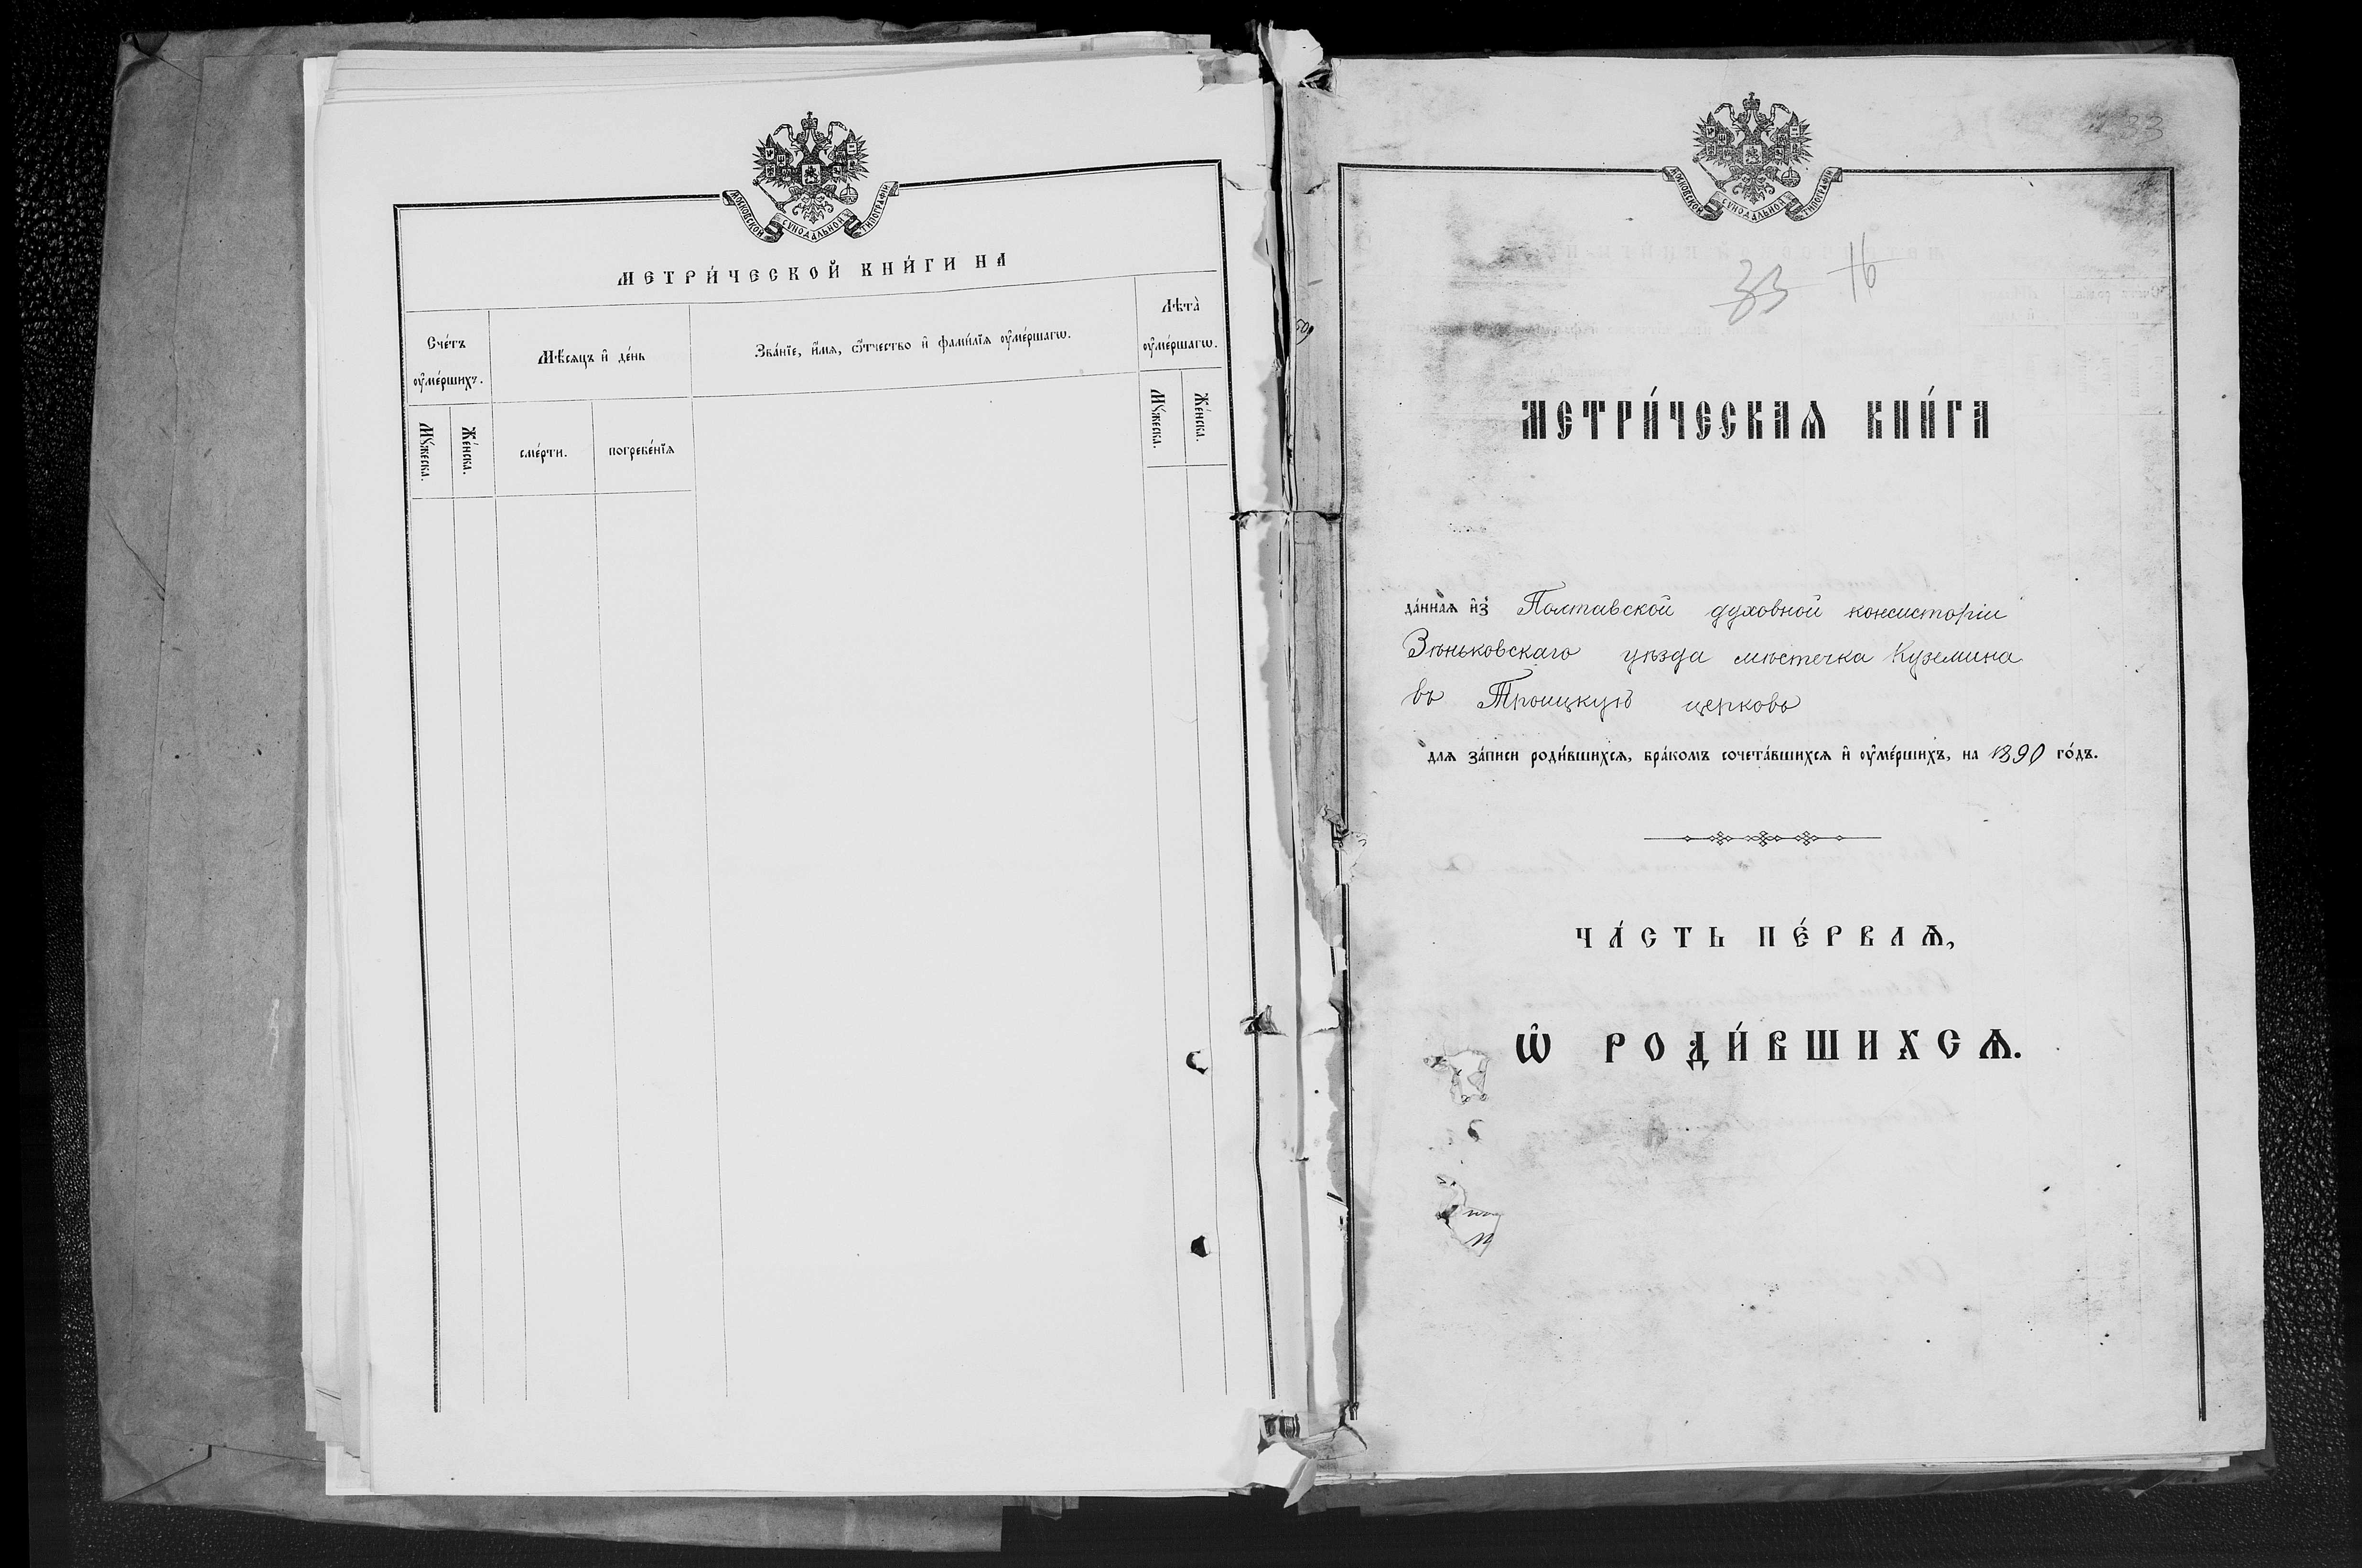 МОСКОВСКОЙ СѴНОДАЛЬНОЙ ТИПОГРАФІИ
МЕТРИ́ЧЕСКОЙ КНИ́ГИ НА
Сче́тъ
ᲂу҆ме́ршихъ.
Мѣ́сяцъ и҆ де́нь
Зва́нїе, и҆́мѧ, ѻ҆́тчество и҆ фами́лїѧ ᲂу҆ме́ршагѡ.
Лѣта̀
ᲂу҆ме́ршагѡ.
Мꙋ́жеска.
Же́нска.
сме́рти.
погребе́нїѧ
Мꙋ́жеска.
Же́нска.
33
МОСКОВСКОЙ СѴНОДАЛЬНОЙ ТИПОГРАФІИ
33 16
МЕТРИ́ЧЕСКАѦ КНИ́ГА
да́ннаѧ и҆з̾ Полтавской духовной консисторіи
Зѣньковскаго уѣзда мѣстечка Куземина
въ Троицкую церковь
длѧ за́писи роди́вшихсѧ, бра́комъ сочета́вшихсѧ и҆ ᲂу҆ме́ршихъ, на 1890 го́дъ.
ЧА́СТЬ ПЕ́РВАѦ,
Ѽ РОДИ́ВШИХСѦ.